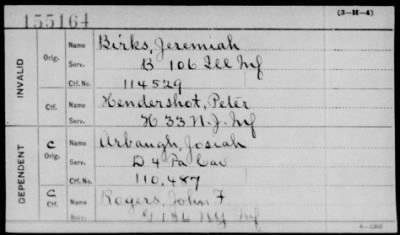 155164
(3-H-4)
INVALID
Orig.
Name Birks, Jeremiah
Serv. B 106 Ill Inf
Ctf. No. 114529
Ctf.
Name Hendershot, Peter
Serv. H 33 N.J. Inf
DEPENDENT
C
Orig.
Name Arbaugh, Josiah
Serv. D 4 Pa Cav
Ctf. No. 110,487
C
Ctf.
Name Rogers, John F
Serv. 136 NY Inf